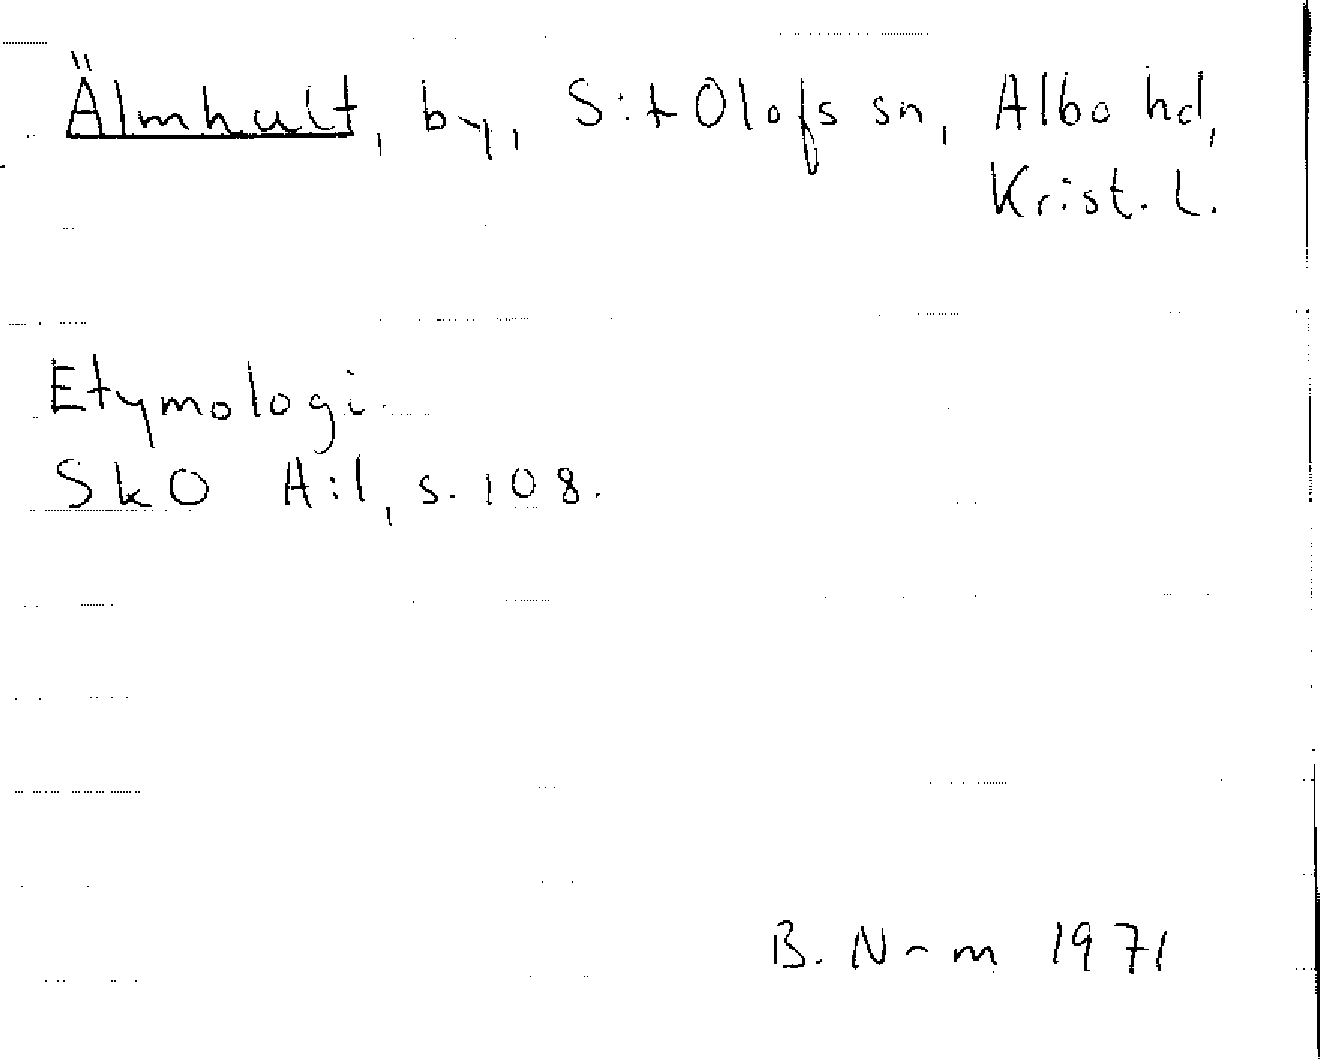 Älmhult, by, S:t Olofs sn, Albo hd,
Krist. L.
Etymologi.
SkO A:1, s. 108.
B. N-m 1971